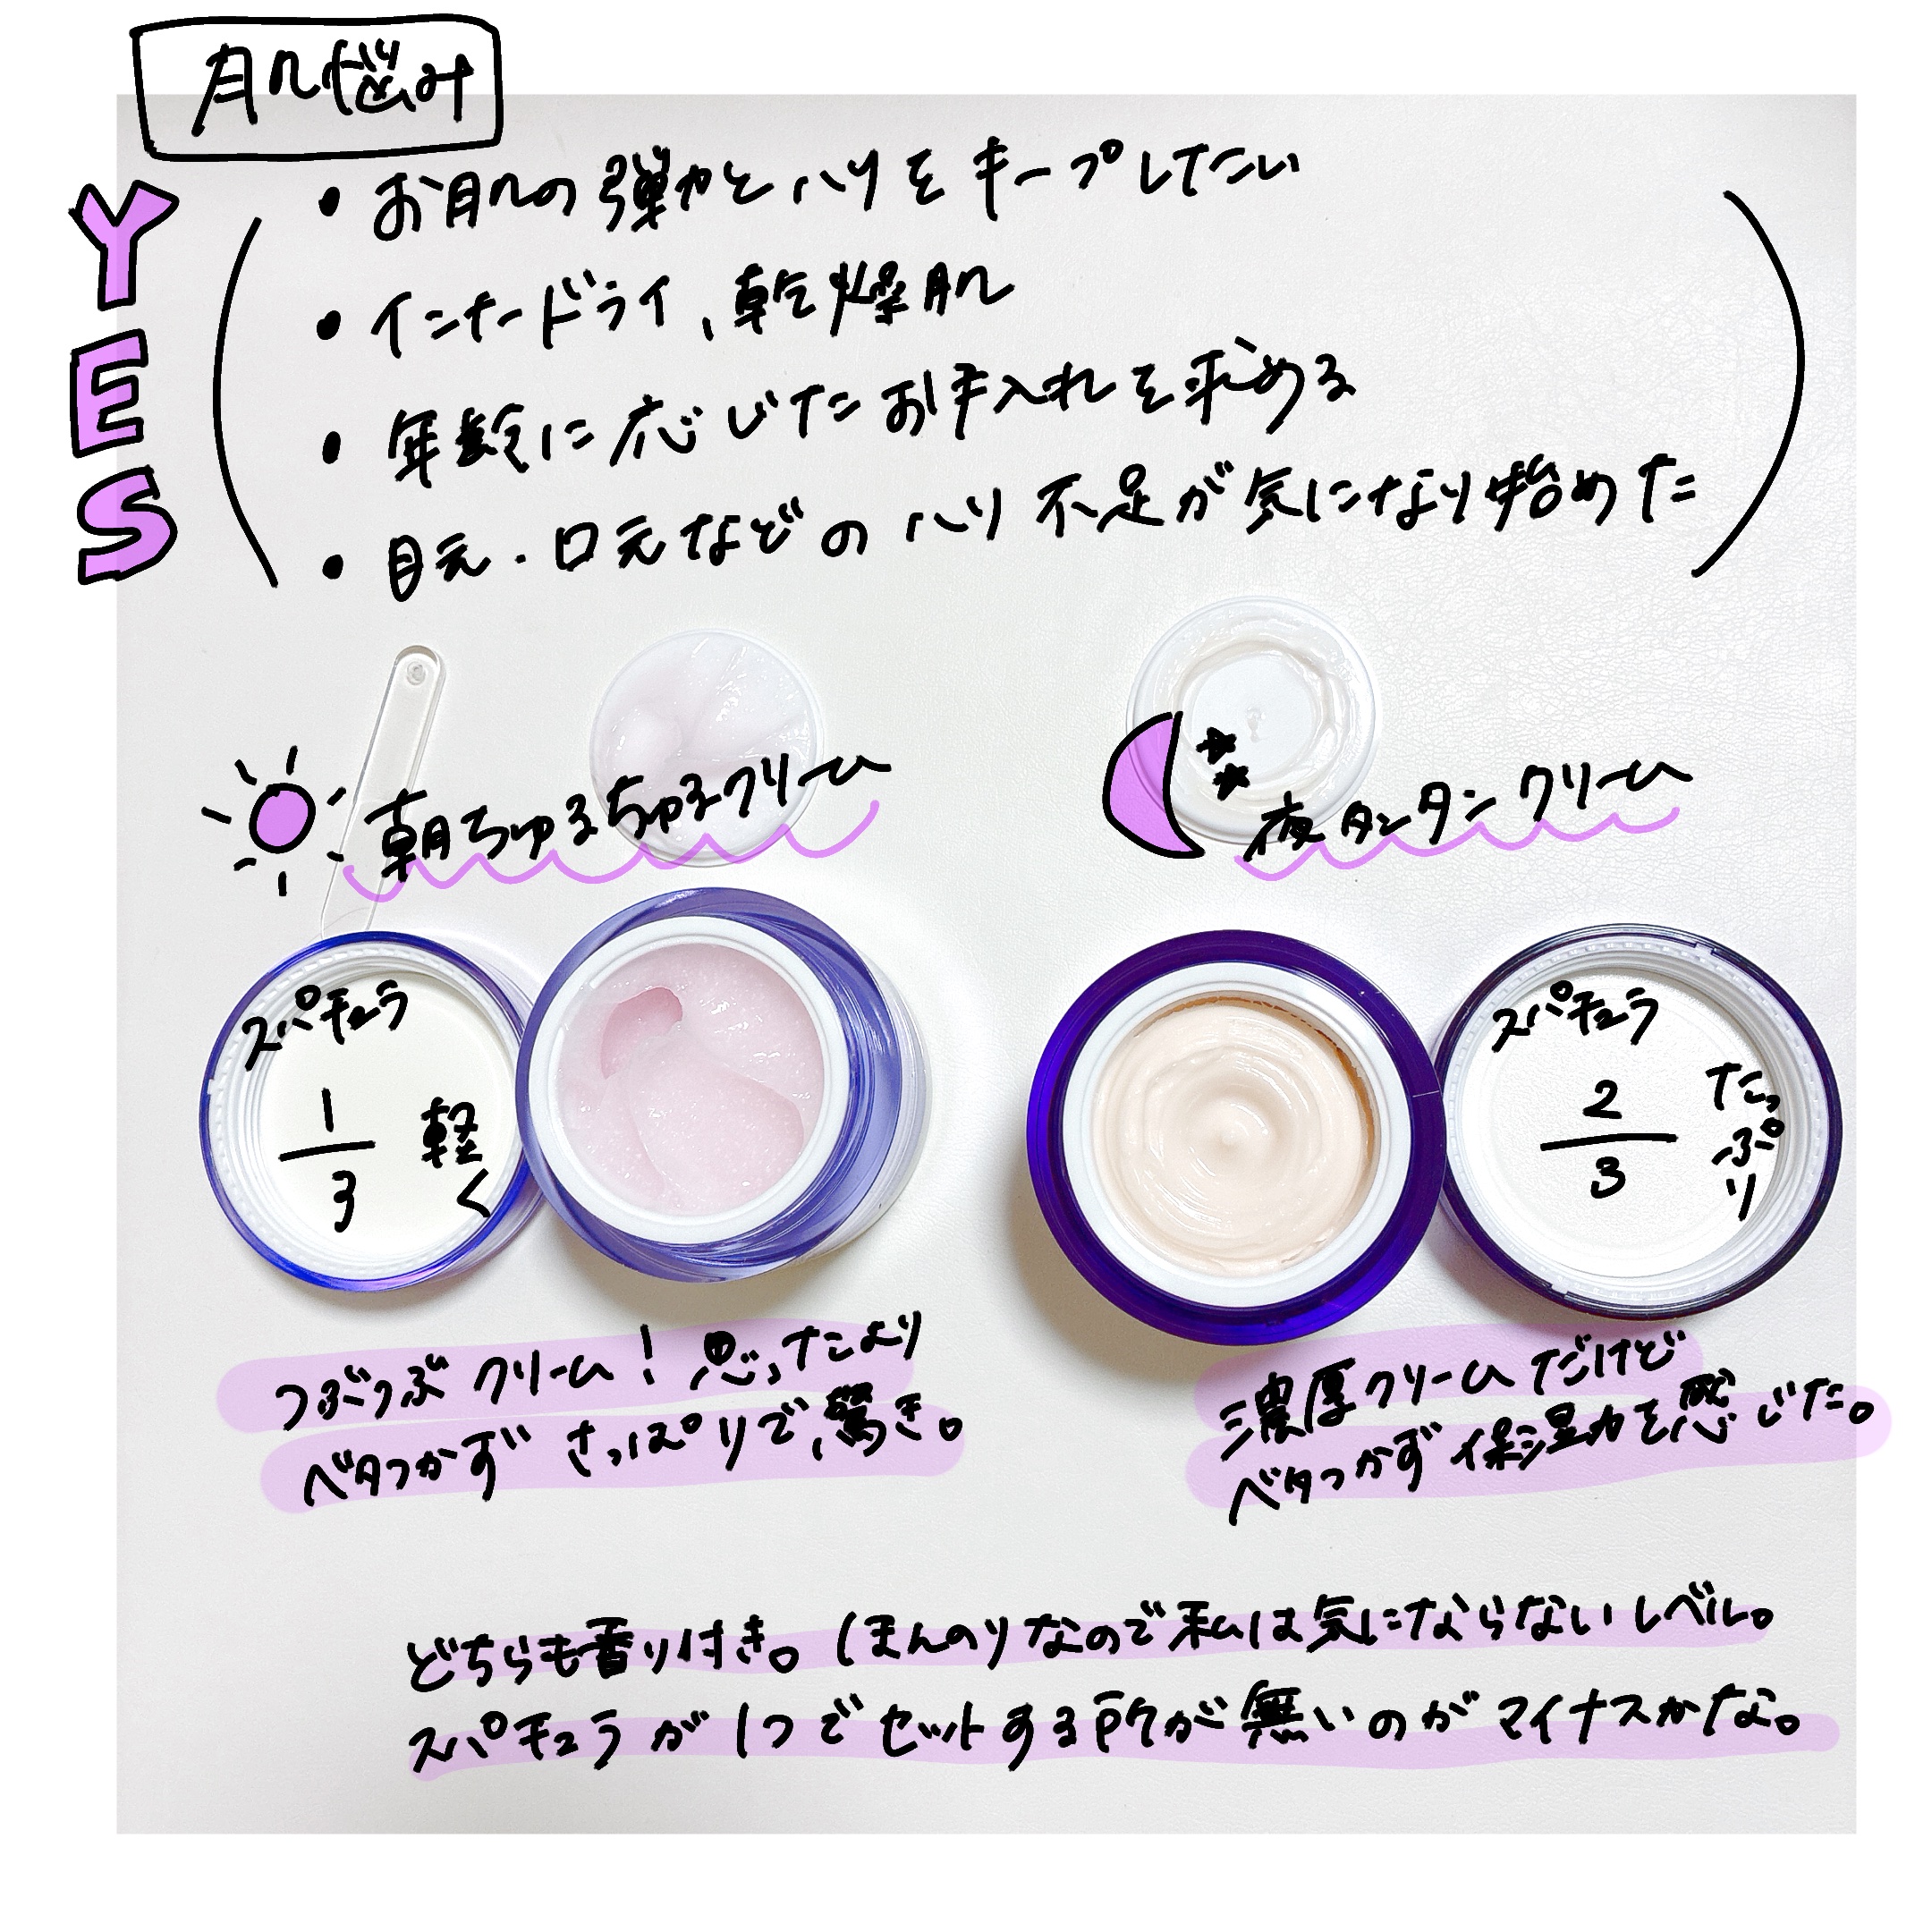 肌悩み
YES
・お肌の弾力とハリをキープしたい
・インナードライ、乾燥肌
・年齢に応じたお手入れを求める
・目元・口元などのハリ不足が気になり始めた
朝ちゅるちゅるクリーム
夜タンタンクリーム
スパチュラ
1/3
軽く
スパチュラ
2/3
たっぷり
つぶつぶクリーム！思ったより
ベタつかずさっぱりで、驚き。
濃厚クリームだけど
ベタつかず保湿力を感じた。
どちらも香り付き。ほんのりなので私は気にならないレベル。
スパチュラが1つでセットする所が無いのがマイナスかな。